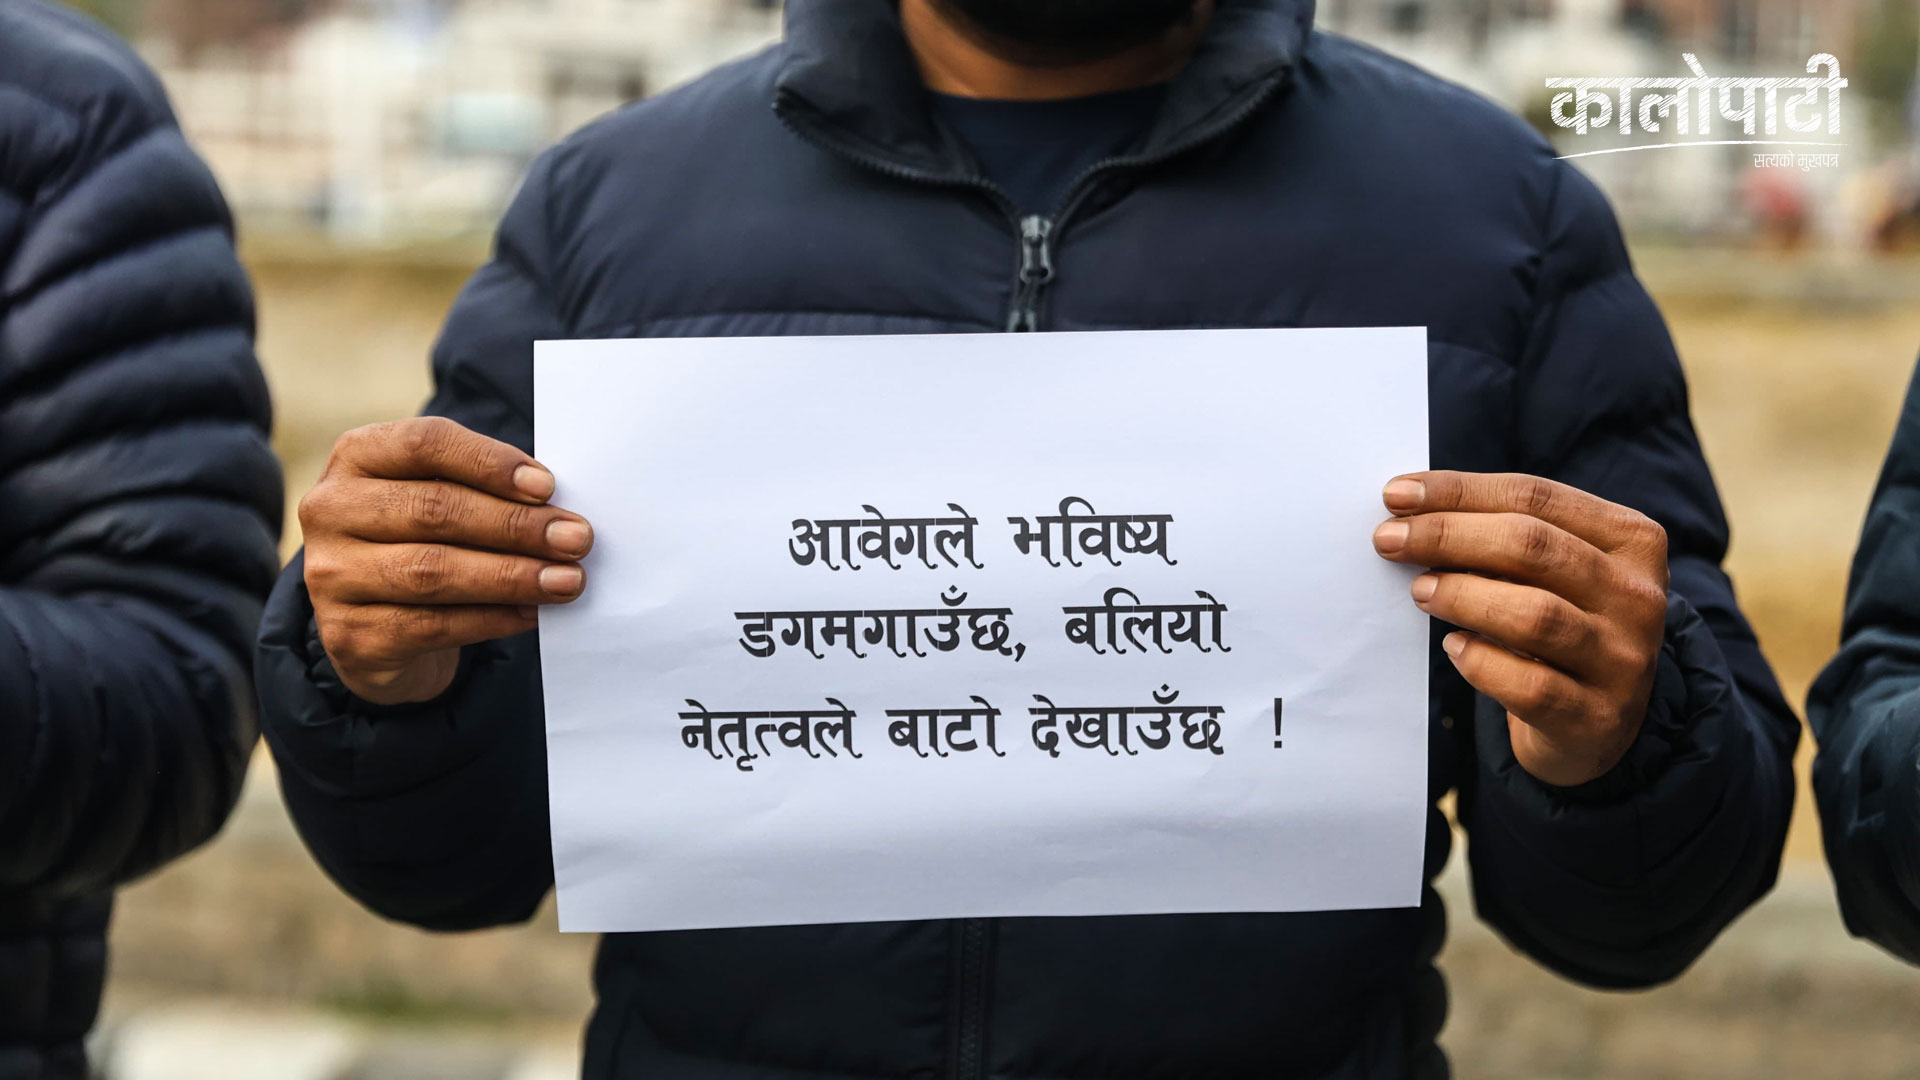 कालोपाटी
सत्यको मुखपत्र
आवेगले भविष्य
डगमगाउँछ, बलियो
नेतृत्वले बाटो देखाउँछ !